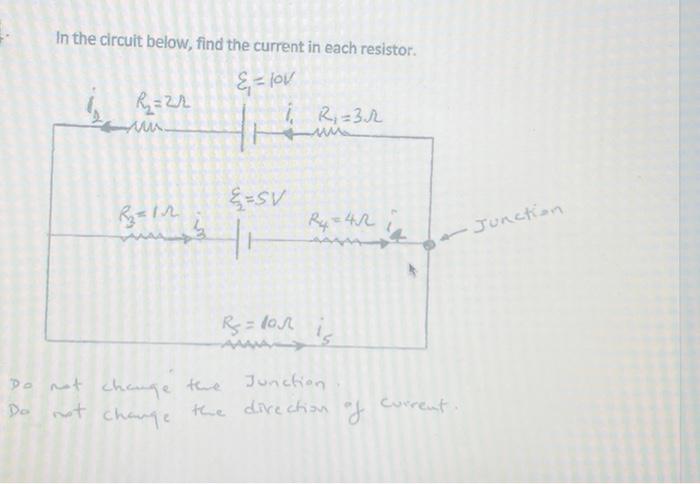 In the circuit below, find the current in each resistor.
ℰ₁=10V
i₂ R₂=2Ω i₁ R₁=3Ω
ℰ₂=5V
R₃=1Ω i₃ R₄=4Ω i₄ Junction
R₅=10Ω i₅
Do not change the Junction.
Do not change the direction of current.